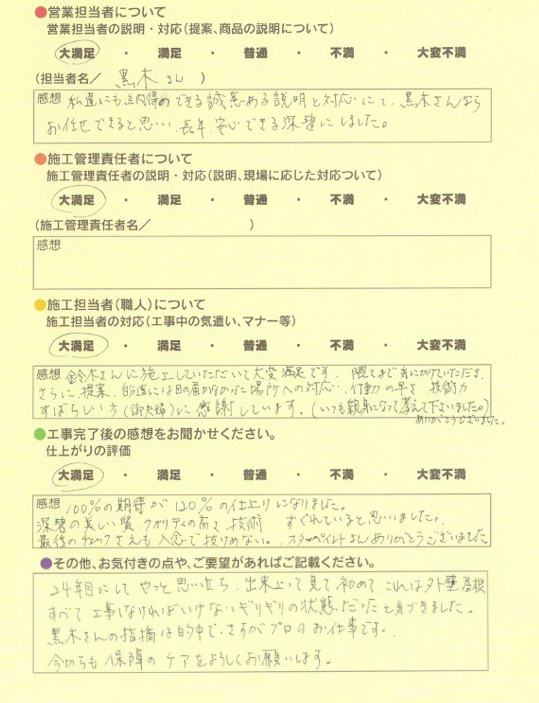 ●営業担当者について
営業担当者の説明・対応(提案、商品の説明について)
大満足 ・ 満足 ・ 普通 ・ 不満 ・ 大変不満
(担当者名/ 黒木さん )
感想 私達にも納得のできる誠意ある説明と対応にて、黒木さんなら
お任せできると思い、長年、安心できる深碧にしました。
●施工管理責任者について
施工管理責任者の説明・対応(説明、現場に応じた対応ついて)
大満足 ・ 満足 ・ 普通 ・ 不満 ・ 大変不満
(施工管理責任者名/ )
感想
●施工担当者(職人)について
施工担当者の対応(工事中の気遣い、マナー等)
大満足 ・ 満足 ・ 普通 ・ 不満 ・ 大変不満
感想 鈴木さんに施工していただいて大変満足です。隅々まで気にかけていただき、
さらに、提案、私達には目の届かなかった場所への対応、行動の早さ、技術力
すばらしい方(御夫婦)に感謝しています。(いつも親身になって考えて下さいました。)
ありがとうございました。
●工事完了後の感想をお聞かせください。
仕上がりの評価
大満足 ・ 満足 ・ 普通 ・ 不満 ・ 大変不満
感想 100%の期待が120%の仕上りになりました。
深碧の美しい質、クオリティの高さ、技術 すぐれていると思いました。
最後のチェックさえも入念で抜けめない。スターペイントさんありがとうございました
●その他、お気付きの点や、ご要望があればご記載ください。
24年目にしてやっと思い立ち、出来上って見て初めて、これは外壁屋根
すべて工事しなければいけないギリギリの状態だったと気づきました。
黒木さんの指摘は的中で、さすがプロのお仕事です。
今からも保障のケアをよろしくお願いします。